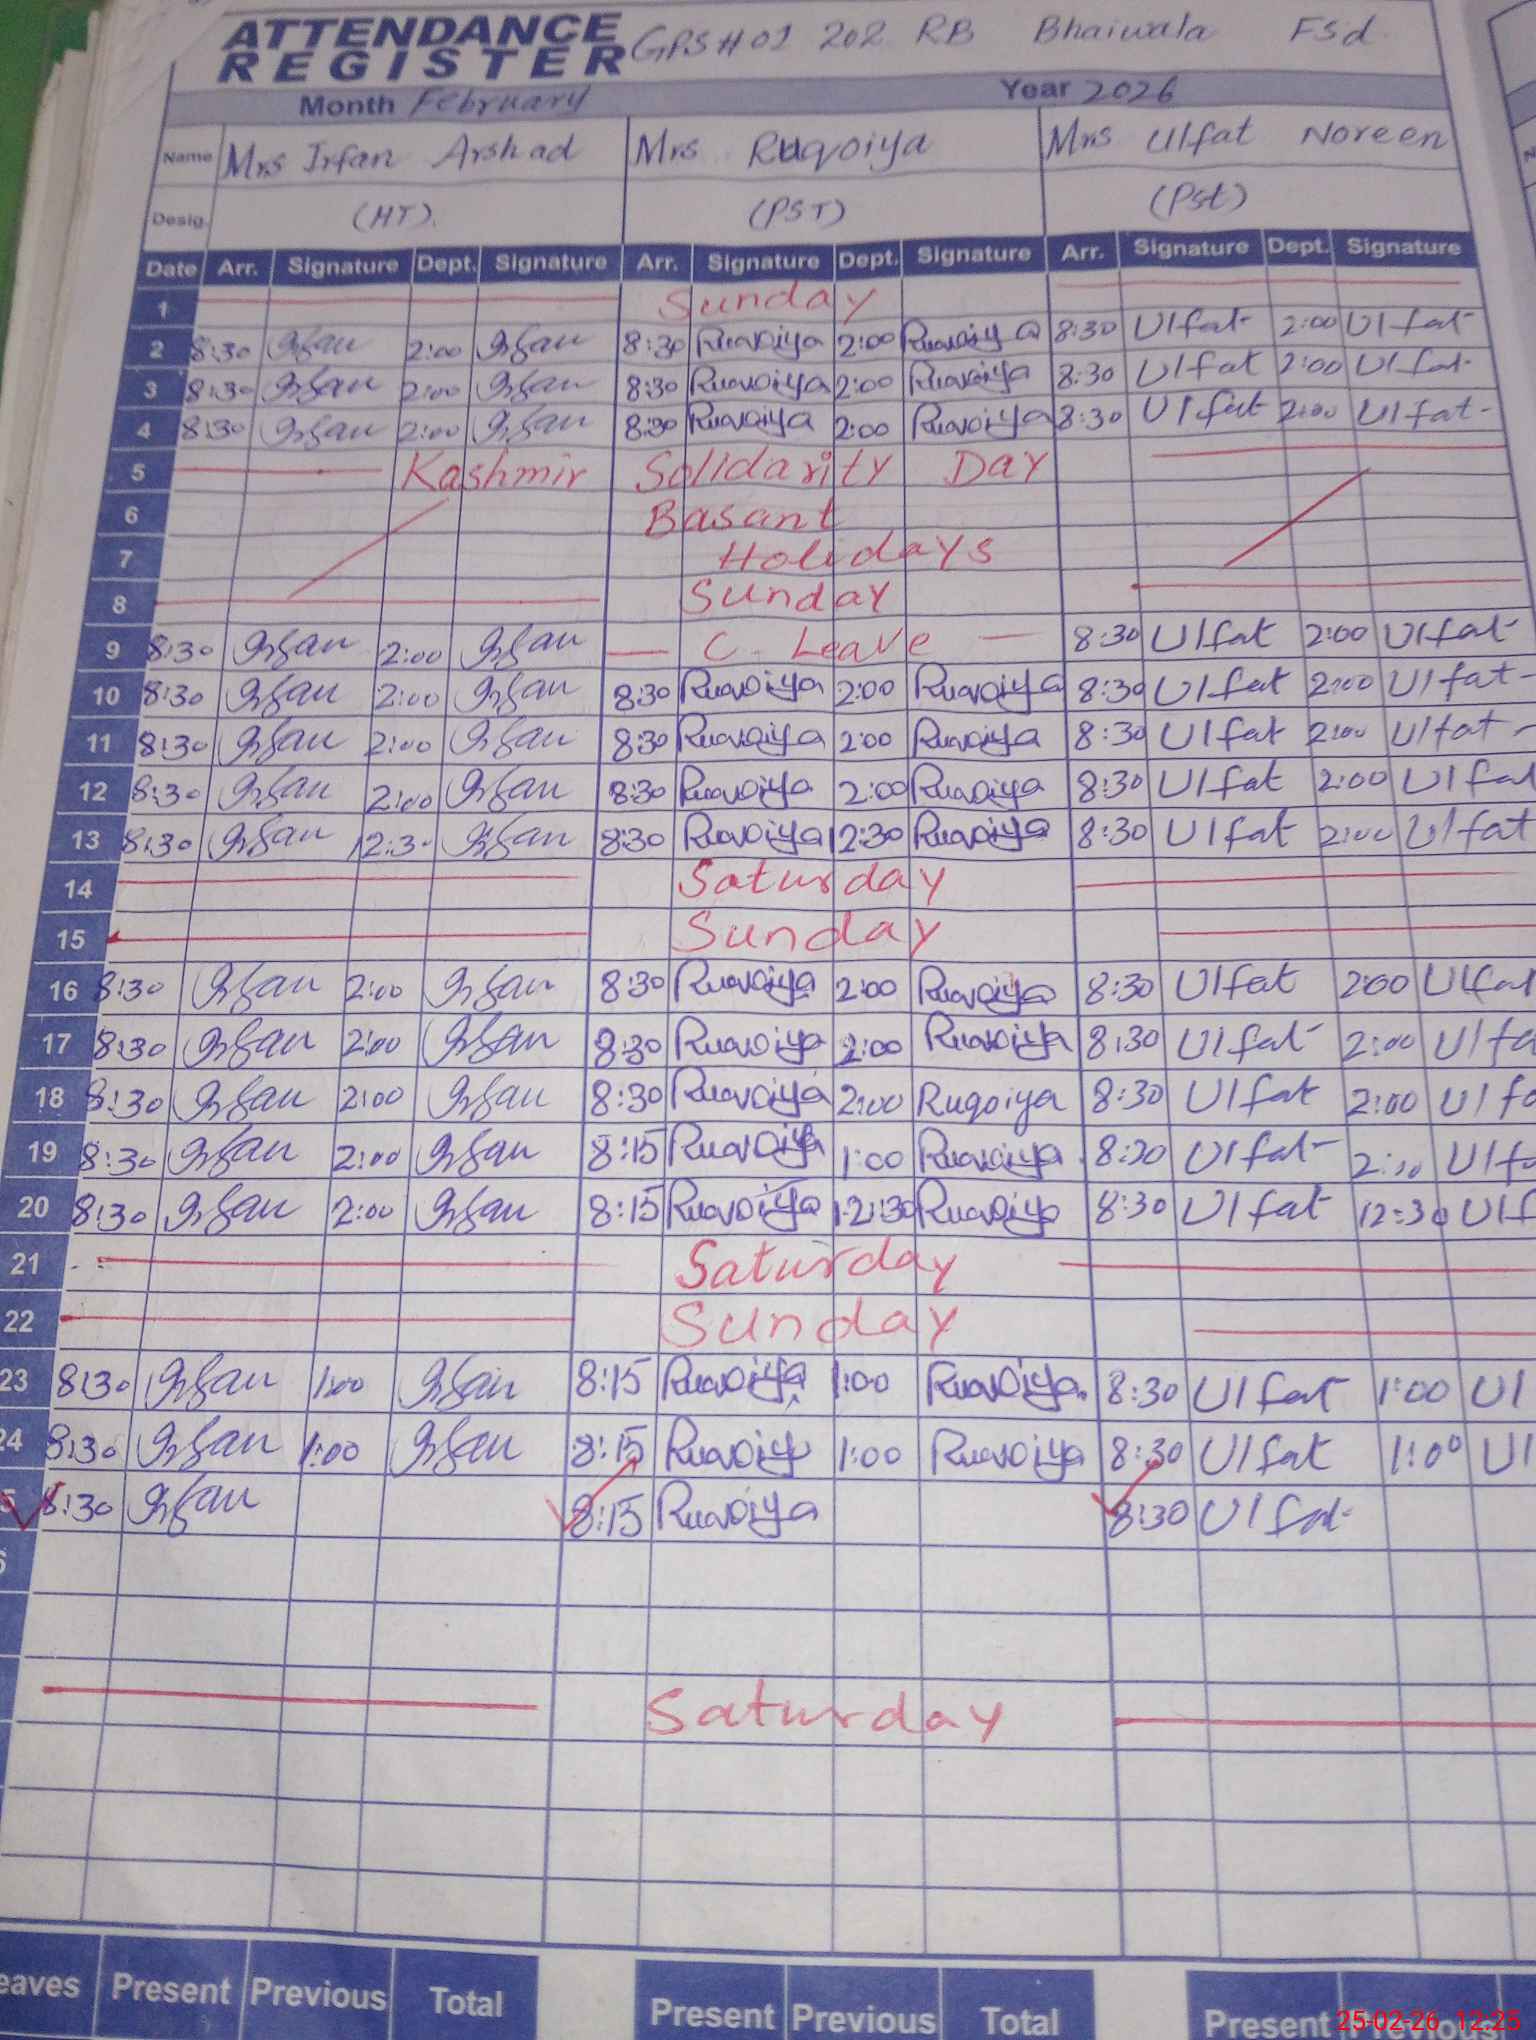 ATTENDANCE REGISTER GPS #01 202 RB Bhaiwala Fsd.
Month February Year 2026
Name Mrs Irfan Arshad Mrs Ruqoiya Mrs Ulfat Noreen
Desig. (HT). (PST) (Pst)
Date Arr. Signature Dept. Signature Arr. Signature Dept. Signature Arr. Signature Dept. Signature
1 Sunday
2 8:30 Irfan 2:00 Irfan 8:30 Ruqoiya 2:00 Ruqoiya 8:30 Ulfat 2:00 Ulfat
3 8:30 Irfan 2:00 Irfan 8:30 Ruqoiya 2:00 Ruqoiya 8:30 Ulfat 2:00 Ulfat
4 8:30 Irfan 2:00 Irfan 8:30 Ruqoiya 2:00 Ruqoiya 8:30 Ulfat 2:00 Ulfat
5 Kashmir Solidarity Day
6 Basant
7 Holidays
8 Sunday
9 8:30 Irfan 2:00 Irfan — C. Leave — 8:30 Ulfat 2:00 Ulfat
10 8:30 Irfan 2:00 Irfan 8:30 Ruqoiya 2:00 Ruqoiya 8:30 Ulfat 2:00 Ulfat
11 8:30 Irfan 2:00 Irfan 8:30 Ruqoiya 2:00 Ruqoiya 8:30 Ulfat 2:00 Ulfat
12 8:30 Irfan 2:00 Irfan 8:30 Ruqoiya 2:00 Ruqoiya 8:30 Ulfat 2:00 Ulfat
13 8:30 Irfan 12:30 Irfan 8:30 Ruqoiya 12:30 Ruqoiya 8:30 Ulfat 2:00 Ulfat
14 Saturday
15 Sunday
16 8:30 Irfan 2:00 Irfan 8:30 Ruqoiya 2:00 Ruqoiya 8:30 Ulfat 2:00 Ulfat
17 8:30 Irfan 2:00 Irfan 8:30 Ruqoiya 2:00 Ruqoiya 8:30 Ulfat 2:00 Ulfa
18 8:30 Irfan 2:00 Irfan 8:30 Ruqoiya 2:00 Ruqoiya 8:30 Ulfat 2:00 Ulf
19 8:30 Irfan 2:00 Irfan 8:15 Ruqoiya 1:00 Ruqoiya 8:30 Ulfat 2:00 Ulf
20 8:30 Irfan 2:00 Irfan 8:15 Ruqoiya 12:30 Ruqoiya 8:30 Ulfat 12:30 Ulf
21 Saturday
22 Sunday
23 8:30 Irfan 1:00 Irfan 8:15 Ruqoiya 1:00 Ruqoiya 8:30 Ulfat 1:00 Ul
24 8:30 Irfan 1:00 Irfan 8:15 Ruqoiya 1:00 Ruqoiya 8:30 Ulfat 1:00 Ul
8:30 Irfan 8:15 Ruqoiya 8:30 Ulfat
Saturday
eaves Present Previous Total Present Previous Total Present
25-02-26 12:25